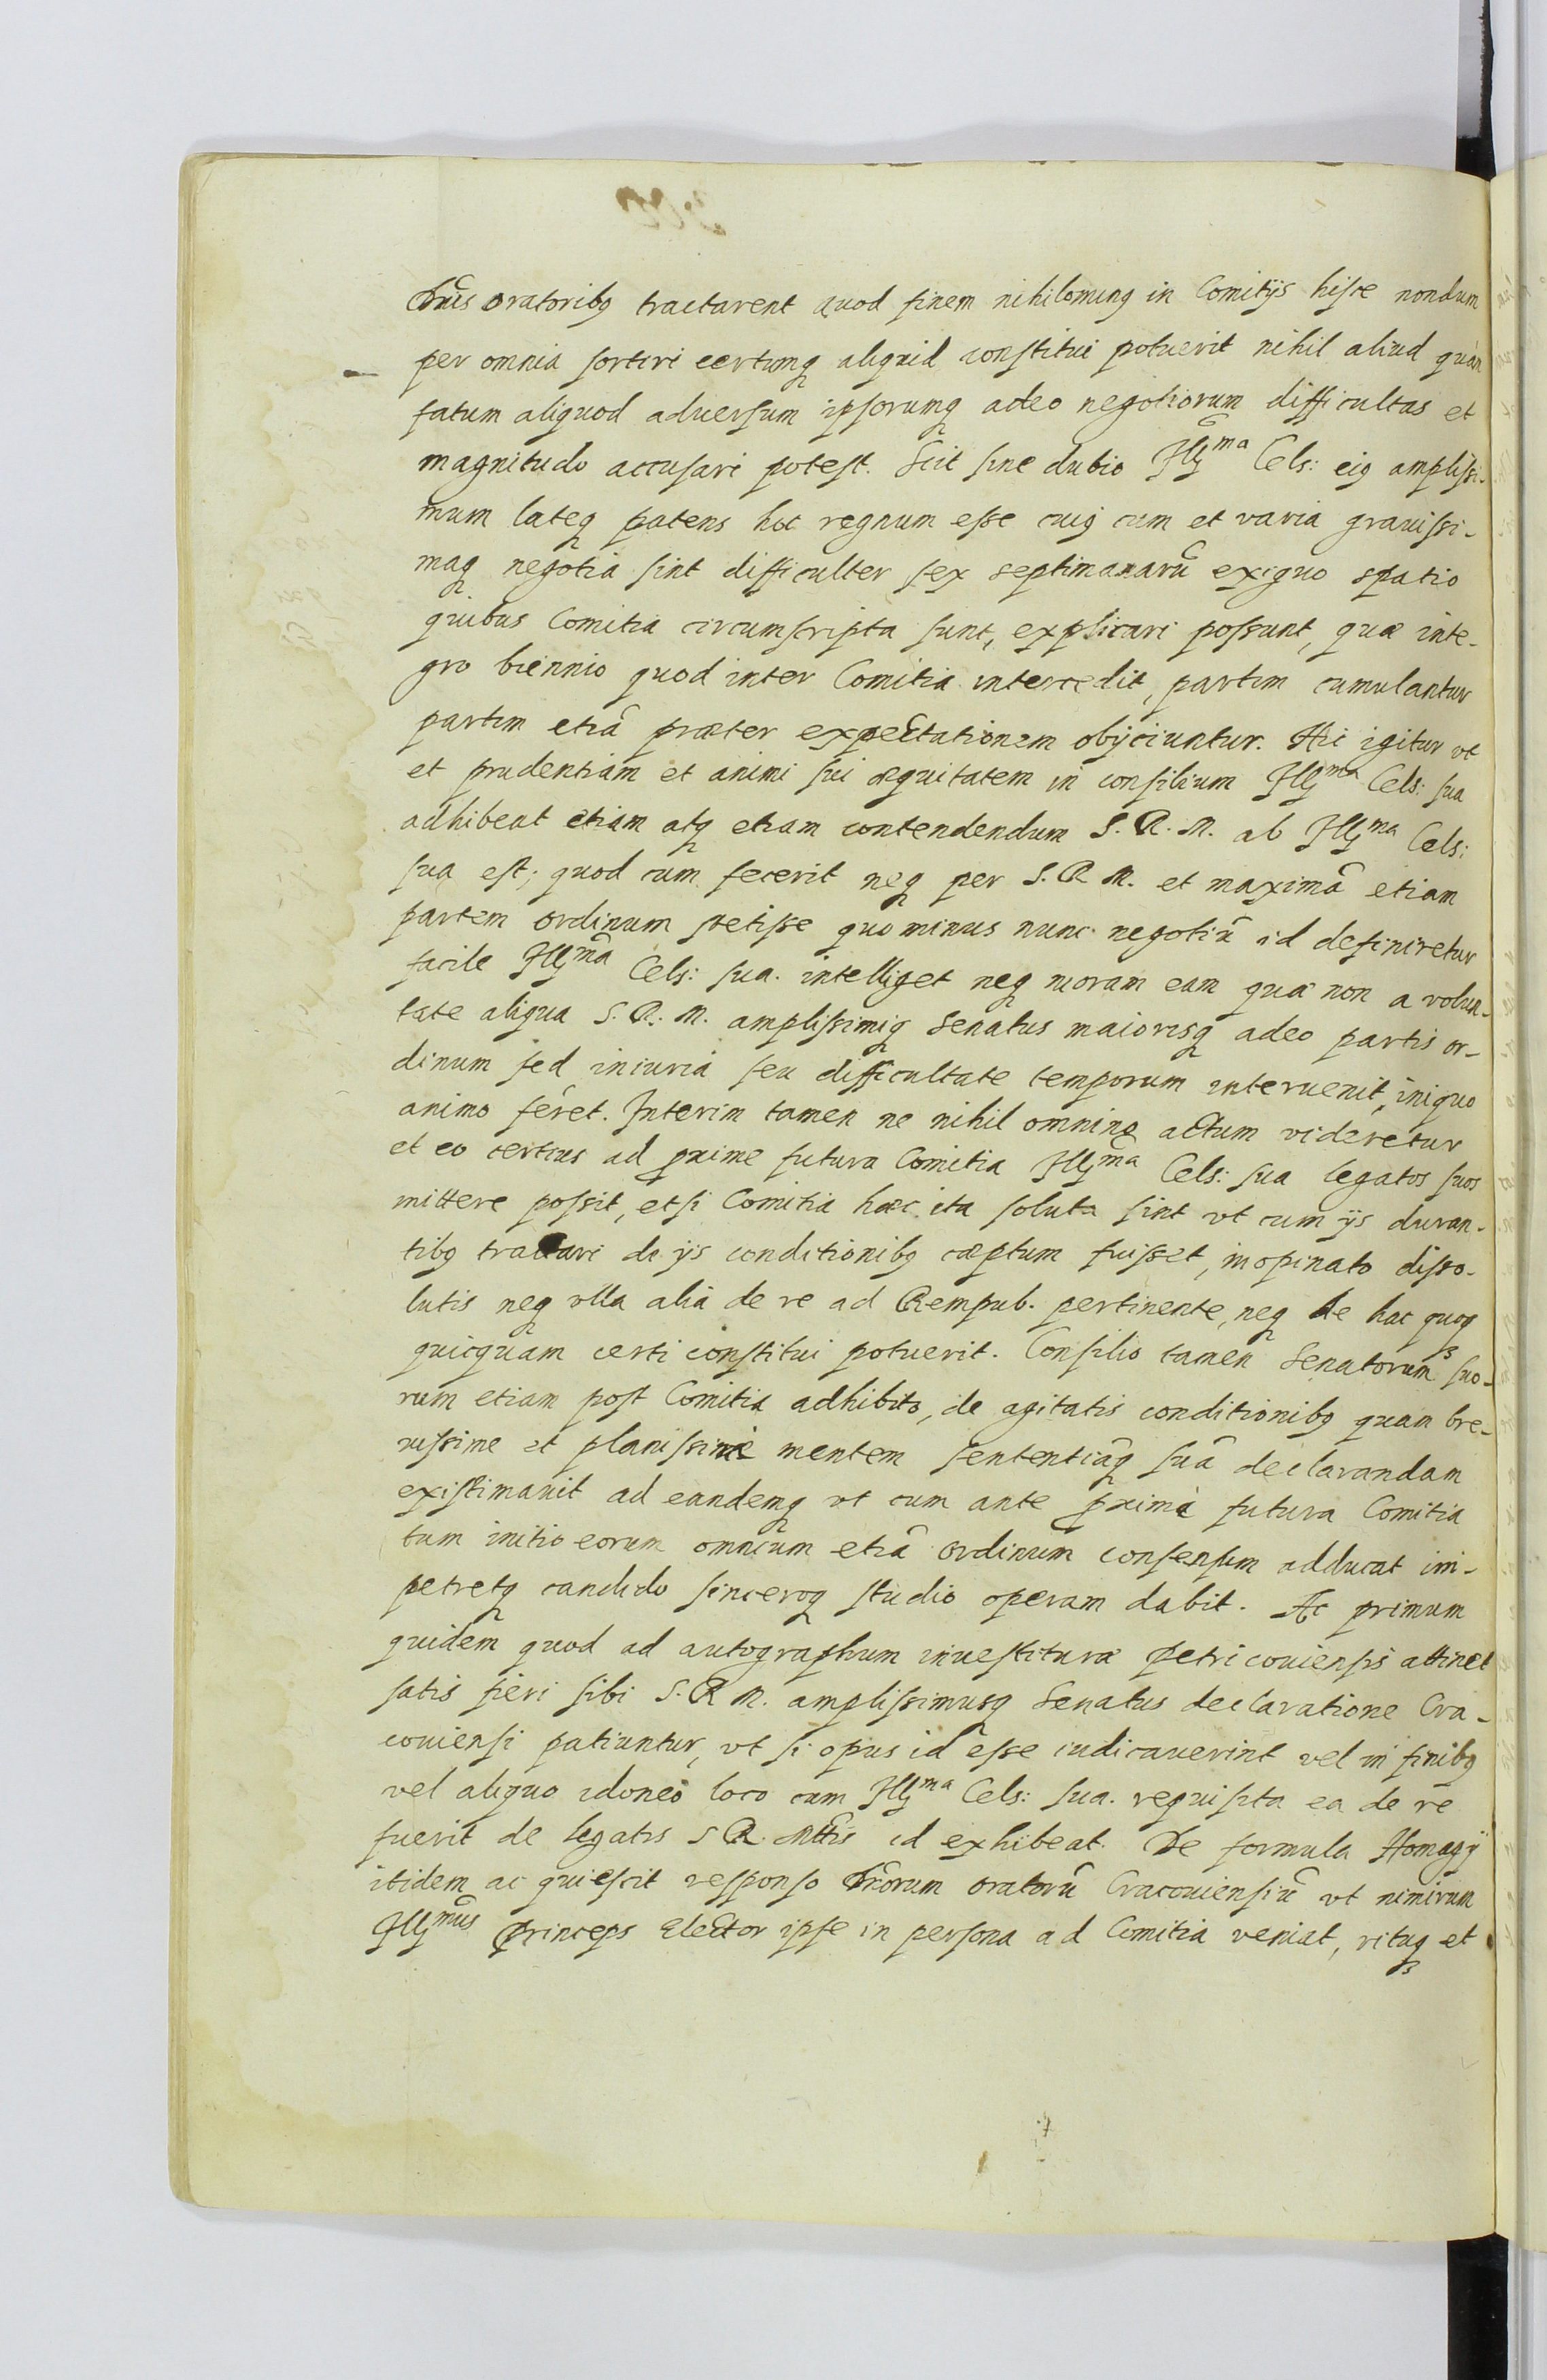 Dn̄is oratoribꝫ tractarent quod finem nihilominꝫ in Comitijs hisce nondum
per omnia sortiri certumqꝫ aliquid constitui potuerit nihil aliud quàm
fatum aliquod aduersum ipsorumqꝫ adeo negotiorum difficultas et
magnitudo accusari potest. Scit sine dubio Ill^ma Cels: eiꝫ amplissi-
mum lateqꝫ patens hoc regnum esse cuiꝫ cum et varia grauissi-
maqꝫ negotia sint difficulter sex septimanarū exiguo spatio
quibus Comitia circumscripta sunt, explicari possunt, quæ inte-
gro biennio quod inter Comitia intercedit, partim cumulantur
partim etiā præter expectationem obijciuntur. Hic igitur vt
et prudentiam et animi sui æquitatem in consilium Ill^ma Cels: sua
adhibeat etiam atqꝫ etiam contendendum S. R. M. ab Ill^ma Cels:
sua est; quod cum fecerit neqꝫ per S. R. M. et maximā etiam
partem ordinum stetisse quo minus nunc negotiū id definiretur
facile Ill^ma Cels: sua. intelliget neqꝫ moram eam quæ non a volun-
tate aliqua S. R. M. amplissimiqꝫ Senatus maiorisqꝫ adeo partis or-
dinum sed iniuria seu difficultate temporum interuenit, iniquo
animo feret. Interim tamen ne nihil omnino actum videretur
et eo certius ad ꝓxime futura Comitia Ill^ma Cels: sua legatos suos
mittere possit, etsi Comitia hæc ita soluta sint vt cum ijs duran-
tibꝫ tractari de ijs conditionibꝫ cæptum fuisset, inopinato disso-
lutis neqꝫ vlla alia de re ad Rempub. pertinente, neqꝫ de hac quoqꝫ
quicquam certi constitui potuerit. Consilio tamen Senatorum suo-
rum etiam post Comitia adhibito, de agitatis conditionibꝫ quam bre-
uissime et planissime mentem sententiāqꝫ suā declarandam
existimauit ad eandemqꝫ vt cum ante ꝓxima futura Comitia
tum initio eorum omnium etiā ordinum consensum adducat im-
petretqꝫ candido sinceroqꝫ studio operam dabit. Ac primum
quidem quod ad autographum inuestituræ Petricouiensis attinet
satis fieri sibi S. R. M. amplissimusqꝫ Senatus declaratione Cra-
couiensi patiuntur, vt si opus id esse iudicauerint vel in finibꝫ
vel aliquo idoneo loco cum Ill^ma Cels: sua. requisita ea de re
fuerit de legatis S R. Mttis id exhibeat. De formula Homagij
itidem acquiescit responso Dn̄orum oratorū Cracouiensiū vt nimirum
Ill^mus Princeps Elector ipse in persona ad Comitia veniat, rituqꝫ et